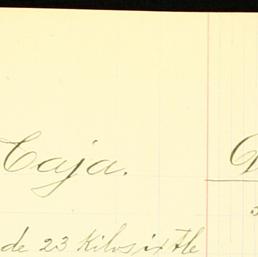 Caja.
de 23 Kilos ixtle